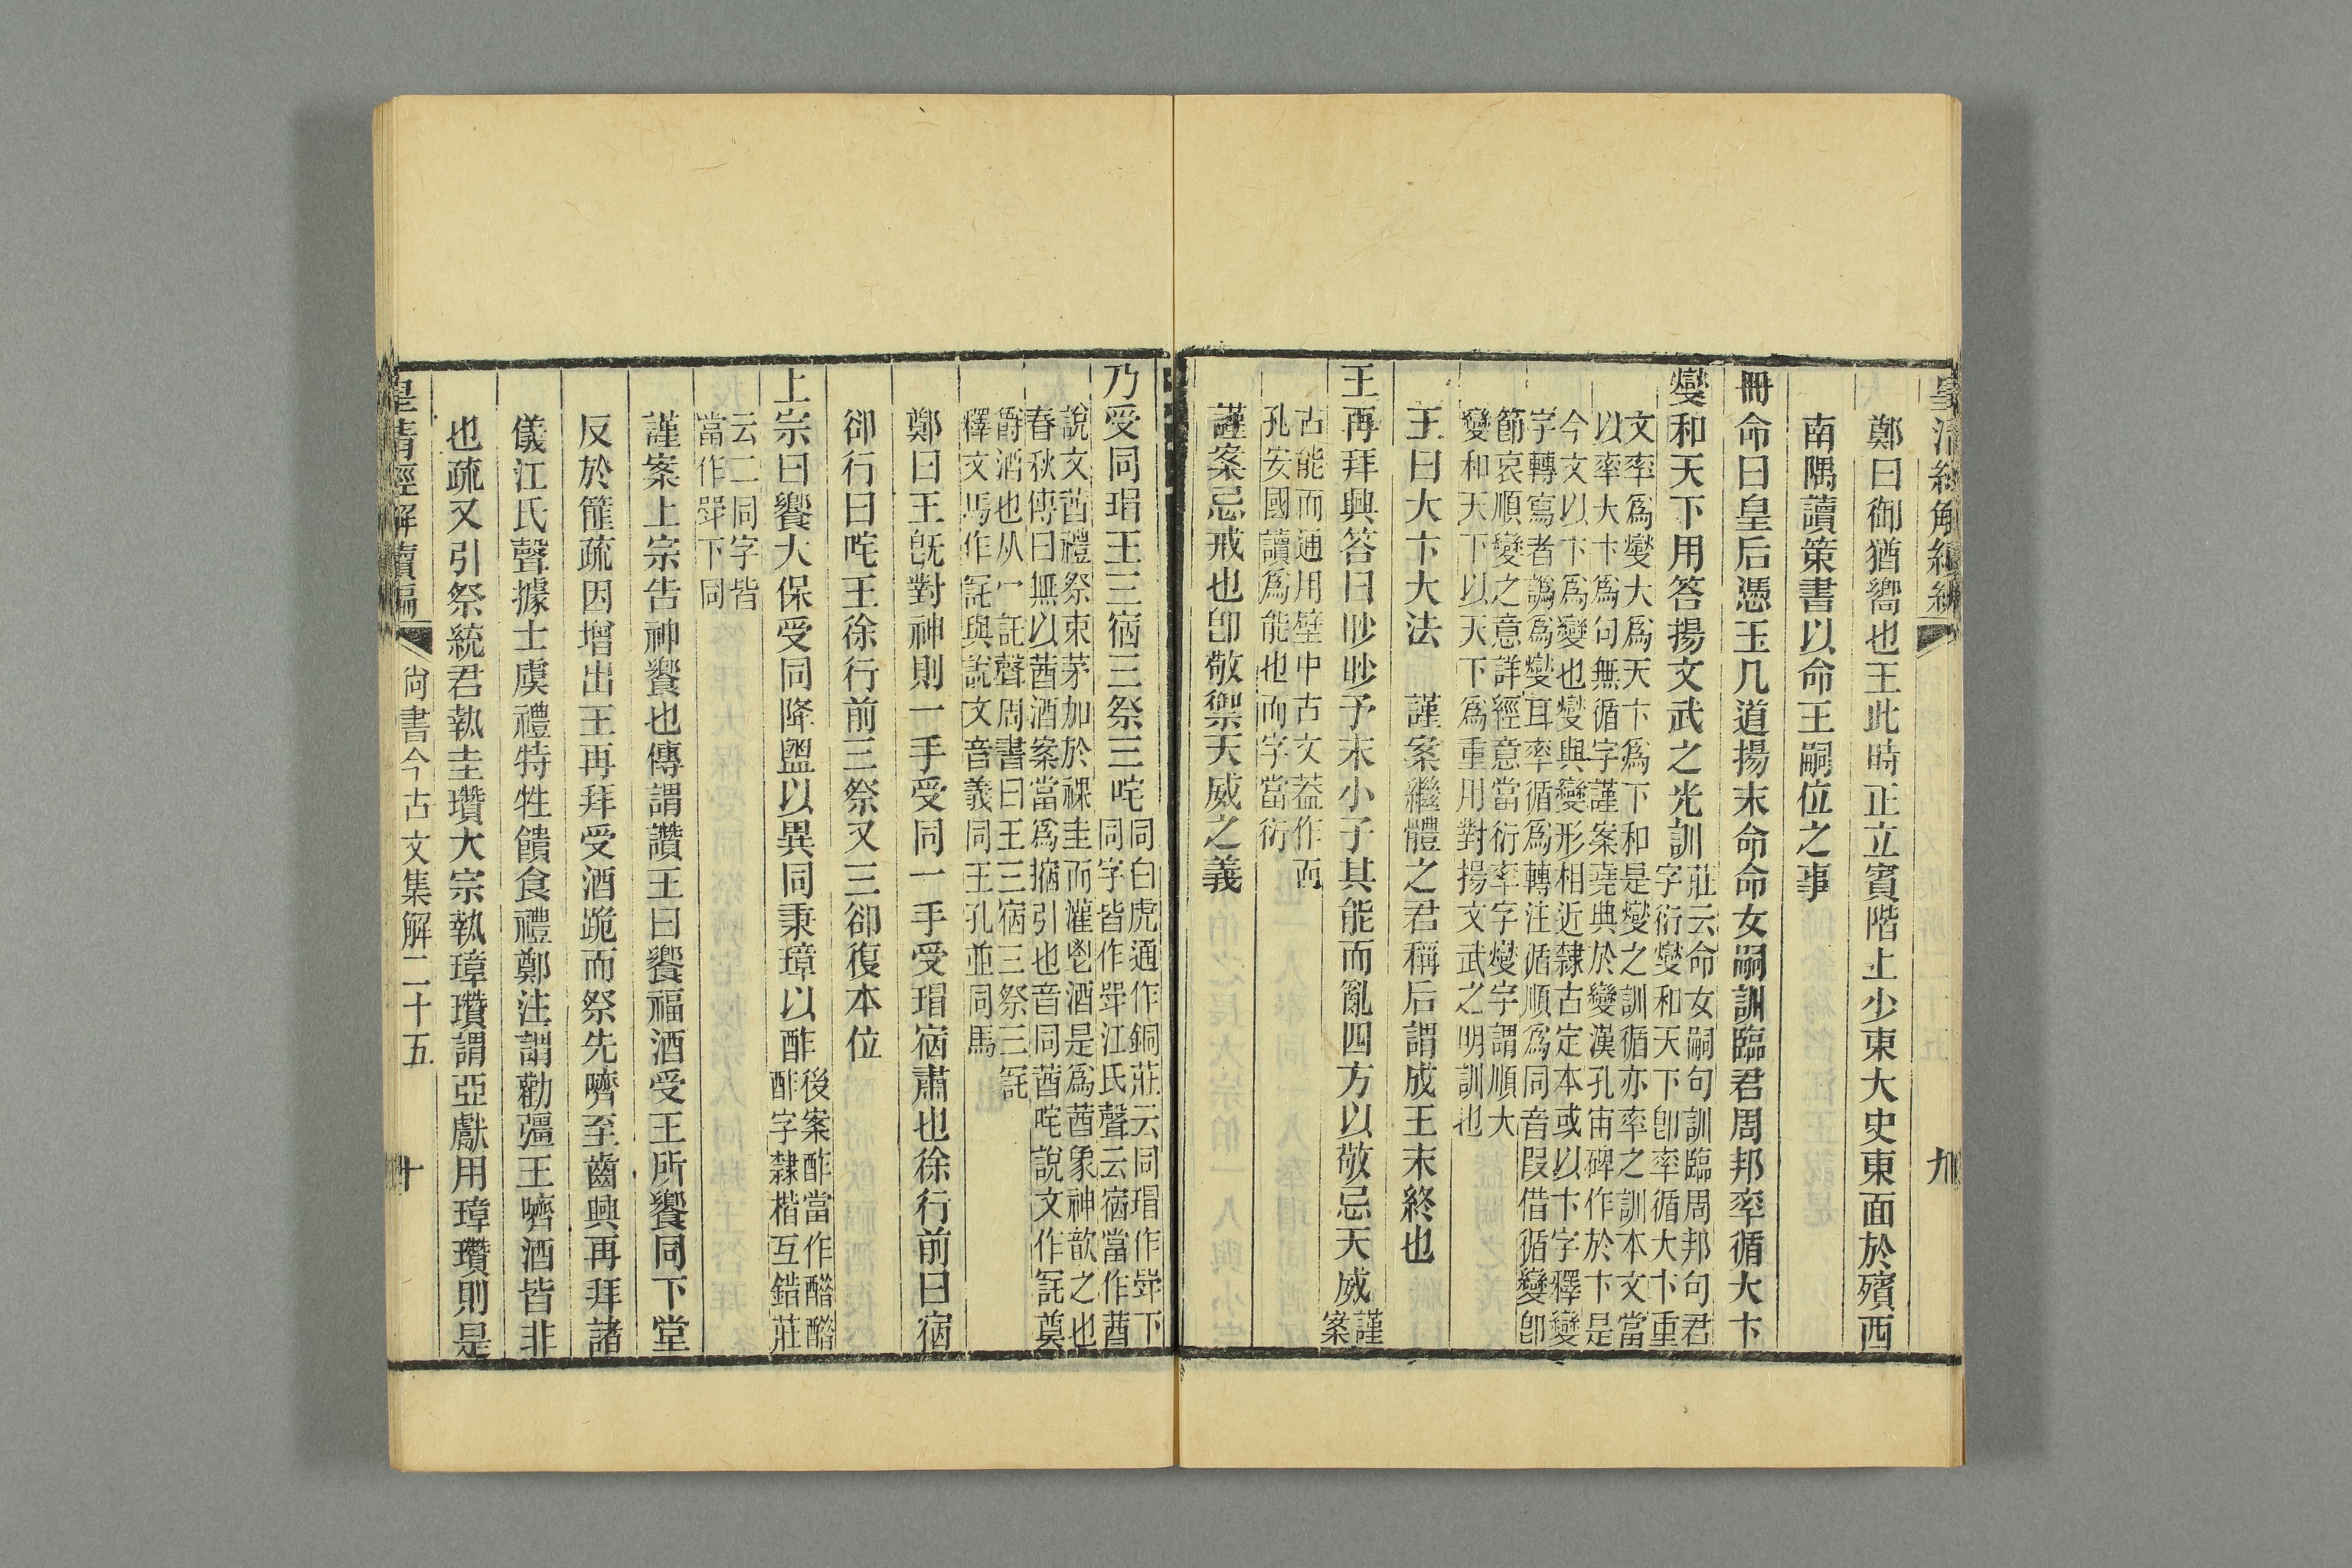 鄭曰御猶嚮也王此時正立賓階上少東大史東面於殯西
南隅讀策書以命王嗣位之事
冊命曰皇后憑玉几道揚末命命女嗣訓臨君周邦率循大卞
燮和天下用答揚文武之光訓
莊云命女嗣句訓臨周邦句君
字衍燮和天下卽率循大卞重
文率爲燮大爲天卞爲下和是燮之訓循亦率之訓本文當
以率大卞爲句無循字謹案堯典於變漢孔宙碑作於卞是
今文以卞爲變也燮與變形相近隸古定本或以卞字釋變
字轉寫者譌爲燮耳率循爲轉注循順爲同音叚借循變卽
節哀順變之意詳經意當衍率字燮字謂順大
變和天下以天下爲重用對揚文武之明訓也
王曰大卞大法　謹案繼體之君稱后謂成王末終也
王再拜興答曰眇眇予末小子其能而亂四方以敬忌天威
謹
案
古能而通用壁中古文葢作而
孔安國讀爲能也而字當衍
謹案忌戒也卽敬禦天威之義
乃受同瑁王三宿三祭三咤
同白虎通作銅莊云同瑁作斝下
同字皆作斝江氏聲云宿當作莤
說文莤禮祭束茅加於祼圭而灌鬯酒是爲莤象神歆之也
春秋傳曰無以莤酒案當爲摍引也音同莤咤說文作㓃奠
爵酒也从冖託聲周書曰王三宿三祭三㓃
釋文馬作㓃與說文音義同王孔並同馬
鄭曰王旣對神則一手受同一手受瑁宿肅也徐行前曰宿
卻行曰咤王徐行前三祭又三卻復本位
上宗曰饗大保受同降盥以異同秉璋以酢
後案酢當作醋醋
酢字隸楷互錯莊
云二同字皆
當作斝下同
謹案上宗告神饗也傳謂讚王曰饗福酒受王所饗同下堂
反於篚疏因增出王再拜受酒跪而祭先嚌至齒興再拜諸
儀江氏聲據士虞禮特牲饋食禮鄭注謂勸彊王嚌酒皆非
也疏又引祭統君執圭瓚大宗執璋瓚謂亞獻用璋瓚則是
皇清經解續編
尚書今古文集解二十五
十